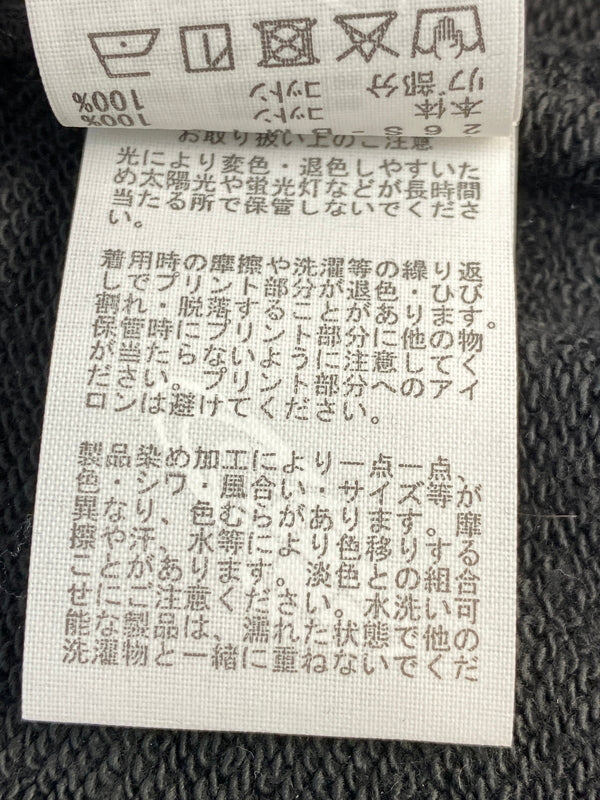 本体 コットン 100%
リブ部分 コットン 100%
お取り扱い上のご注意
光により変色・退色しやすいた
め太陽光や蛍光灯などで長時間
当たる所で保管しないでくださ
い。
着用時の摩擦や洗濯等の繰り返
しでプリント部分が退色・ひび
割れ・脱落することがあります。
保管時にプリント部分に他の物
が当たらないように注意してく
ださい。プリント部分へのアイ
ロンは避けてください。
製品染め加工により一点一点、
色・シワ・風合い・サイズ等が
異なり、色むらがあります。摩
擦や汗、水等により色移りする
ことがあります。淡色との組合
せにご注意ください。水洗い可
能な製品は、濡れた状態で他の
洗濯物と一緒に重ねないでくだ